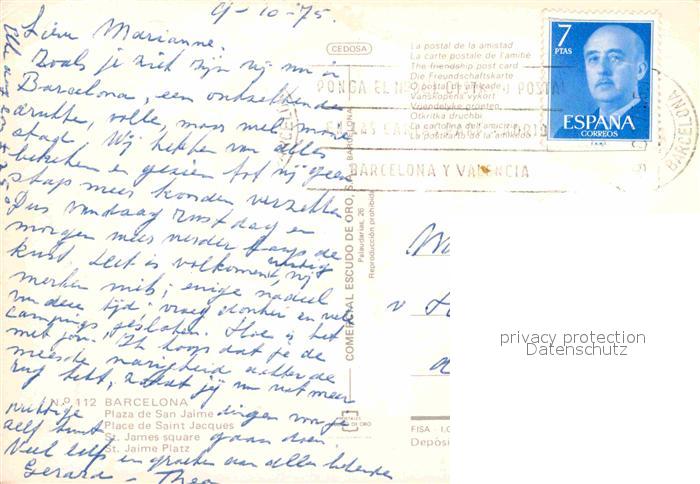 9-10-75.
Lieve Marianne.
Zoals je ziet zijn wij nu in
Barcelona, een ontzettende
drukke, volle, maar wel mooie
stad. Wij hebben van alles
bekeken en gezien tot wij geen
stap meer konden verzetten
Dus vandaag rustdag en
morgen weer verder langs de
kust. Het is volkomen rustig, wij
merken niets; enige nadeel
van deze tijd; vroeg donker en veel
campings gesloten. Hoe is het
met jou. Ik hoop dat je de
meeste narigheid achter de
rug hebt, zodat jij nu wat meer
prettige dingen voor je
zelf kunt gaan doen.
Veel liefs en groeten aan alle bekenden
Gerard - Thea
CEDOSA
La postal de la amistad
La carte postale de l'amitié
The friendship post card
Die Freundschaftskarte
O postal de amizade
Vänskapens vykort
Vriendelijke groeten
Otkritka druchbi
La cartolina dell'amicizia
La postkarto de la amikedo
PONGA EL POSTAL
EN LAS
BARCELONA Y VALENCIA
BARCELONA
7
PTAS
ESPAÑA
CORREOS
F.N.M.T.
COMERCIAL ESCUDO DE ORO, S.A. BARCELONA
Palaudarias, 26
Reproducción prohibida
N.º 112 BARCELONA
Plaza de San Jaime
Place de Saint Jacques
St. James square
St. Jaime Platz
POSTALES
ESCUDO DE ORO
FISA - I.G.
Depósi
privacy protection
Datenschutz